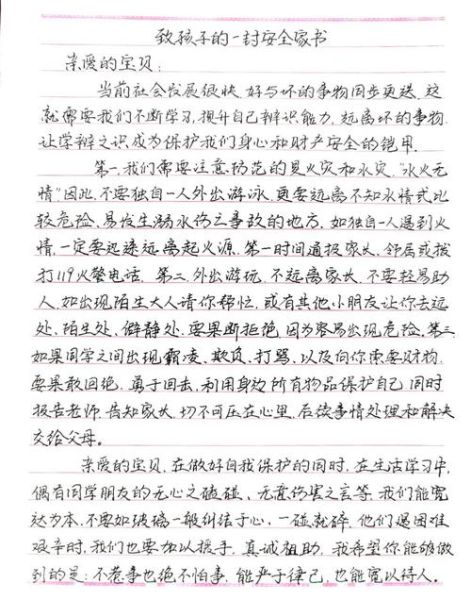 致孩子的一封安全家书
亲爱的宝贝:
当前社会发展很快,好与坏的事物同步更迭,这
就需要我们不断学习,提升自己辩识能力,远离坏的事物,
让学辩之识成为保护我们身心和财产安全的铠甲.
第一,我们需要注意防范的是火灾和水灾,“水火无
情”因此,不要独自一人外出游泳,更要远离不知水情或比
较危险,易发生溺水伤亡事故的地方,如独自一人遇到火
情,一定要迅速远离起火源,第一时间通报家长,邻居或拨
打119火警电话,第二,外出游玩,不远离家长,不要轻易助
人,如出现陌生大人请你帮忙,或有其他小朋友让你去远
处,陌生处,僻静处,要果断拒绝,因为容易出现危险.第三
如果同学之间出现霸凌、欺负、打骂,以及向你索要财物,
要果敢回绝,勇于回击,利用身边所有物品保护自己,同时
报告老师,告知家长,切不可压在心里,后续事情处理和解决
交给父母。
亲爱的宝贝,在做好自我保护的同时,在生活学习中,
偶有同学朋友的无心之磕碰、无意伤害之言等,我们能宽
达为本,不要如玻璃一般纠结于心,一碰就碎,他们遇困难
艰辛时,我们也要加以援手,真诚相助,我希望你能够做
到的是:不惹事也绝不怕事,能严于律己,也能宽以待人。